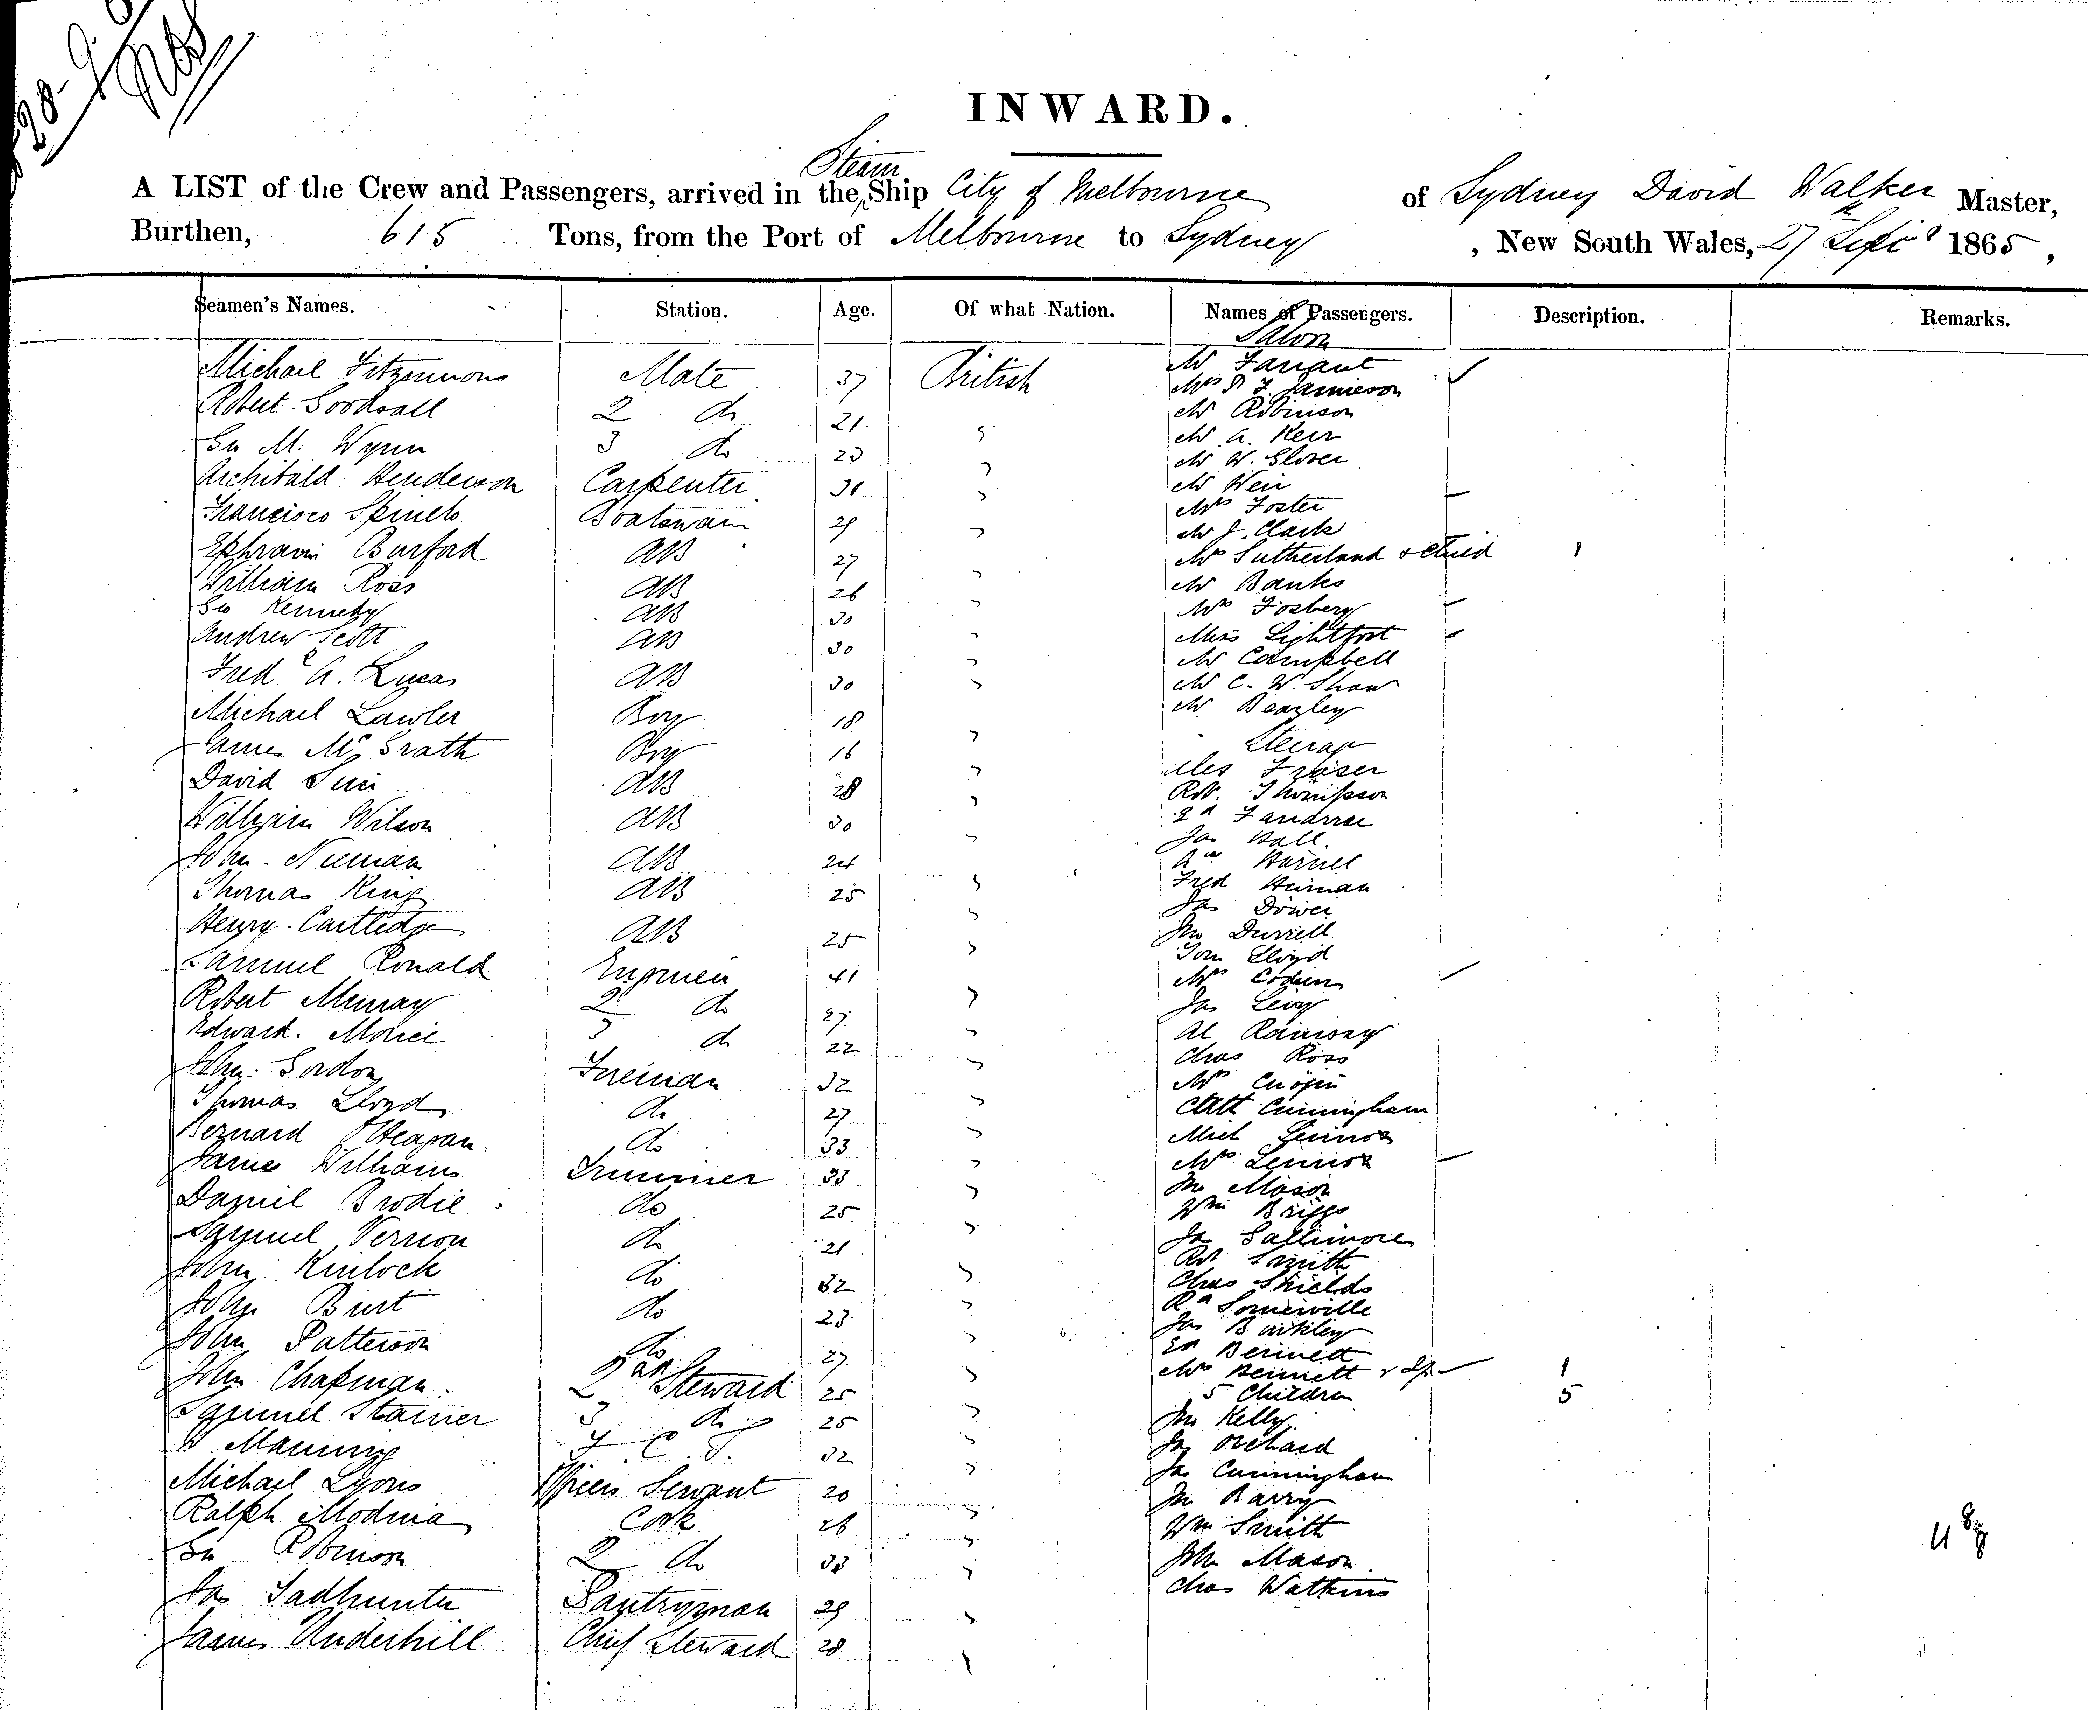 INWARD.
Steam
A LIST of the Crew and Passengers, arrived in the Ship City of Melbourne of Sydney David Walker Master,
Burthen, 615 Tons, from the Port of Melbourne to Sydney, New South Wales, 27 Sept 1865,
Seamen's Names. Station. Age. Of what Nation. Names of Passengers. Description. Remarks.
Saloon
Michael Fitzsimons Mate 37 British Mr Farrant
Mrs & F. Jamieson
Robert Goodsall 2 do 21 " Mr Robinson
Mr A. Kerr
Geo M. Wynn 3 do 23 " Mr W. Glover
Archibald Henderson Carpenter 31 " Mr Weir
Mrs Foster
Francisco Boatswain 29 " Mr J. Clark
Ephraim Burford AB 27 " Mrs Sutherland & Child 1
William Ross AB 26 " Mr Banks
Geo Kennedy AB 30 " Mrs Fosbery
Andrew Scott AB 30 " Miss Lightfoot
Mr Campbell
Fred A. Lucas AB 30 " Mr C. W. Shaw
Michael Lawler Boy 18 " Mr Beazley
James McGrath Boy 16 " Steerage
Fraser
David AB 28 " Robt Thompson
William Wilson AB 30 "
Jas Hall
John AB 24 "
Fred
Thomas King AB 25 " Jas
Henry Cartledge AB 25 " Jno Durrell
Tom Lloyd
Samuel Ronald Engineer 41 " Mrs
Robert Murray 2 do 27 " Jas Levy
Al Ramsay
Edward 3 do 22 " Chas Ross
John Gordon Fireman 32 " Mrs
Thomas Lloyd do 27 " Cunningham
Bernard do 33 " Lennox
James Williams Trimmer 33 " Mrs Lennox
Daniel Brodie do 25 " Jno Mason
Wm Briggs
Samuel Vernon do 21 " Jas
Robt Smith
John Kinlock do 32 " Chas Shields
John Burt do 23 " Somerville
Jas
John Patterson do 27 " Ed Bennett
John Chapman 2nd Steward 25 " Mrs Bennett & 1
5 Children 5
Samuel 3 do 25 " Jno Kelly
W Manning 4 do 32 " Jas Orchard
Jas Cunningham
Michael Lyons Officers Servant 20 " Jno Barry
Ralph Cook 26 " Wm Smith
Geo Robinson 2 do 33 " John Mason
Jas Pantryman 29 " Chas Watkins
James Underhill Chief Steward 28 "